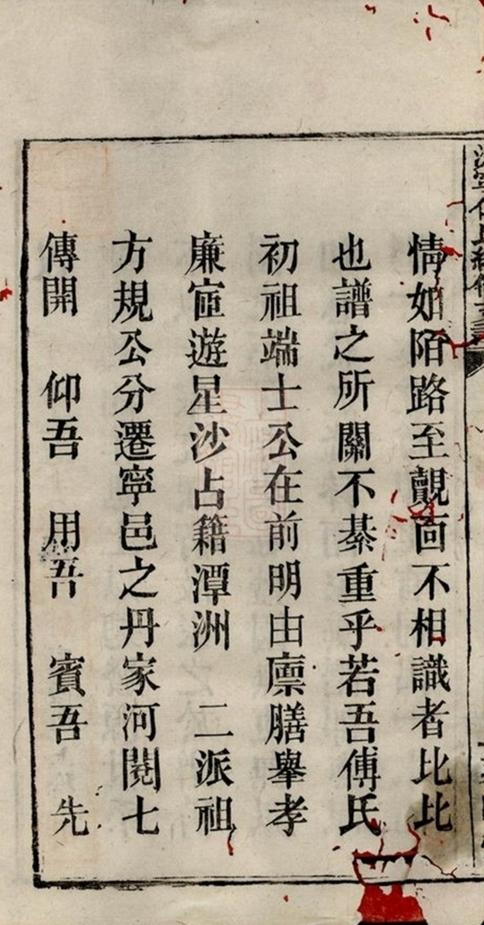 情如陌路至覿面不相識者比比
也譜之所關不綦重乎若吾傅氏
初祖端士公在前明由廩膳舉孝
廉宦遊星沙占籍潭洲 二派祖
方規公分遷寧邑之丹家河閱七
傳開 仰吾 用吾 賓吾 先